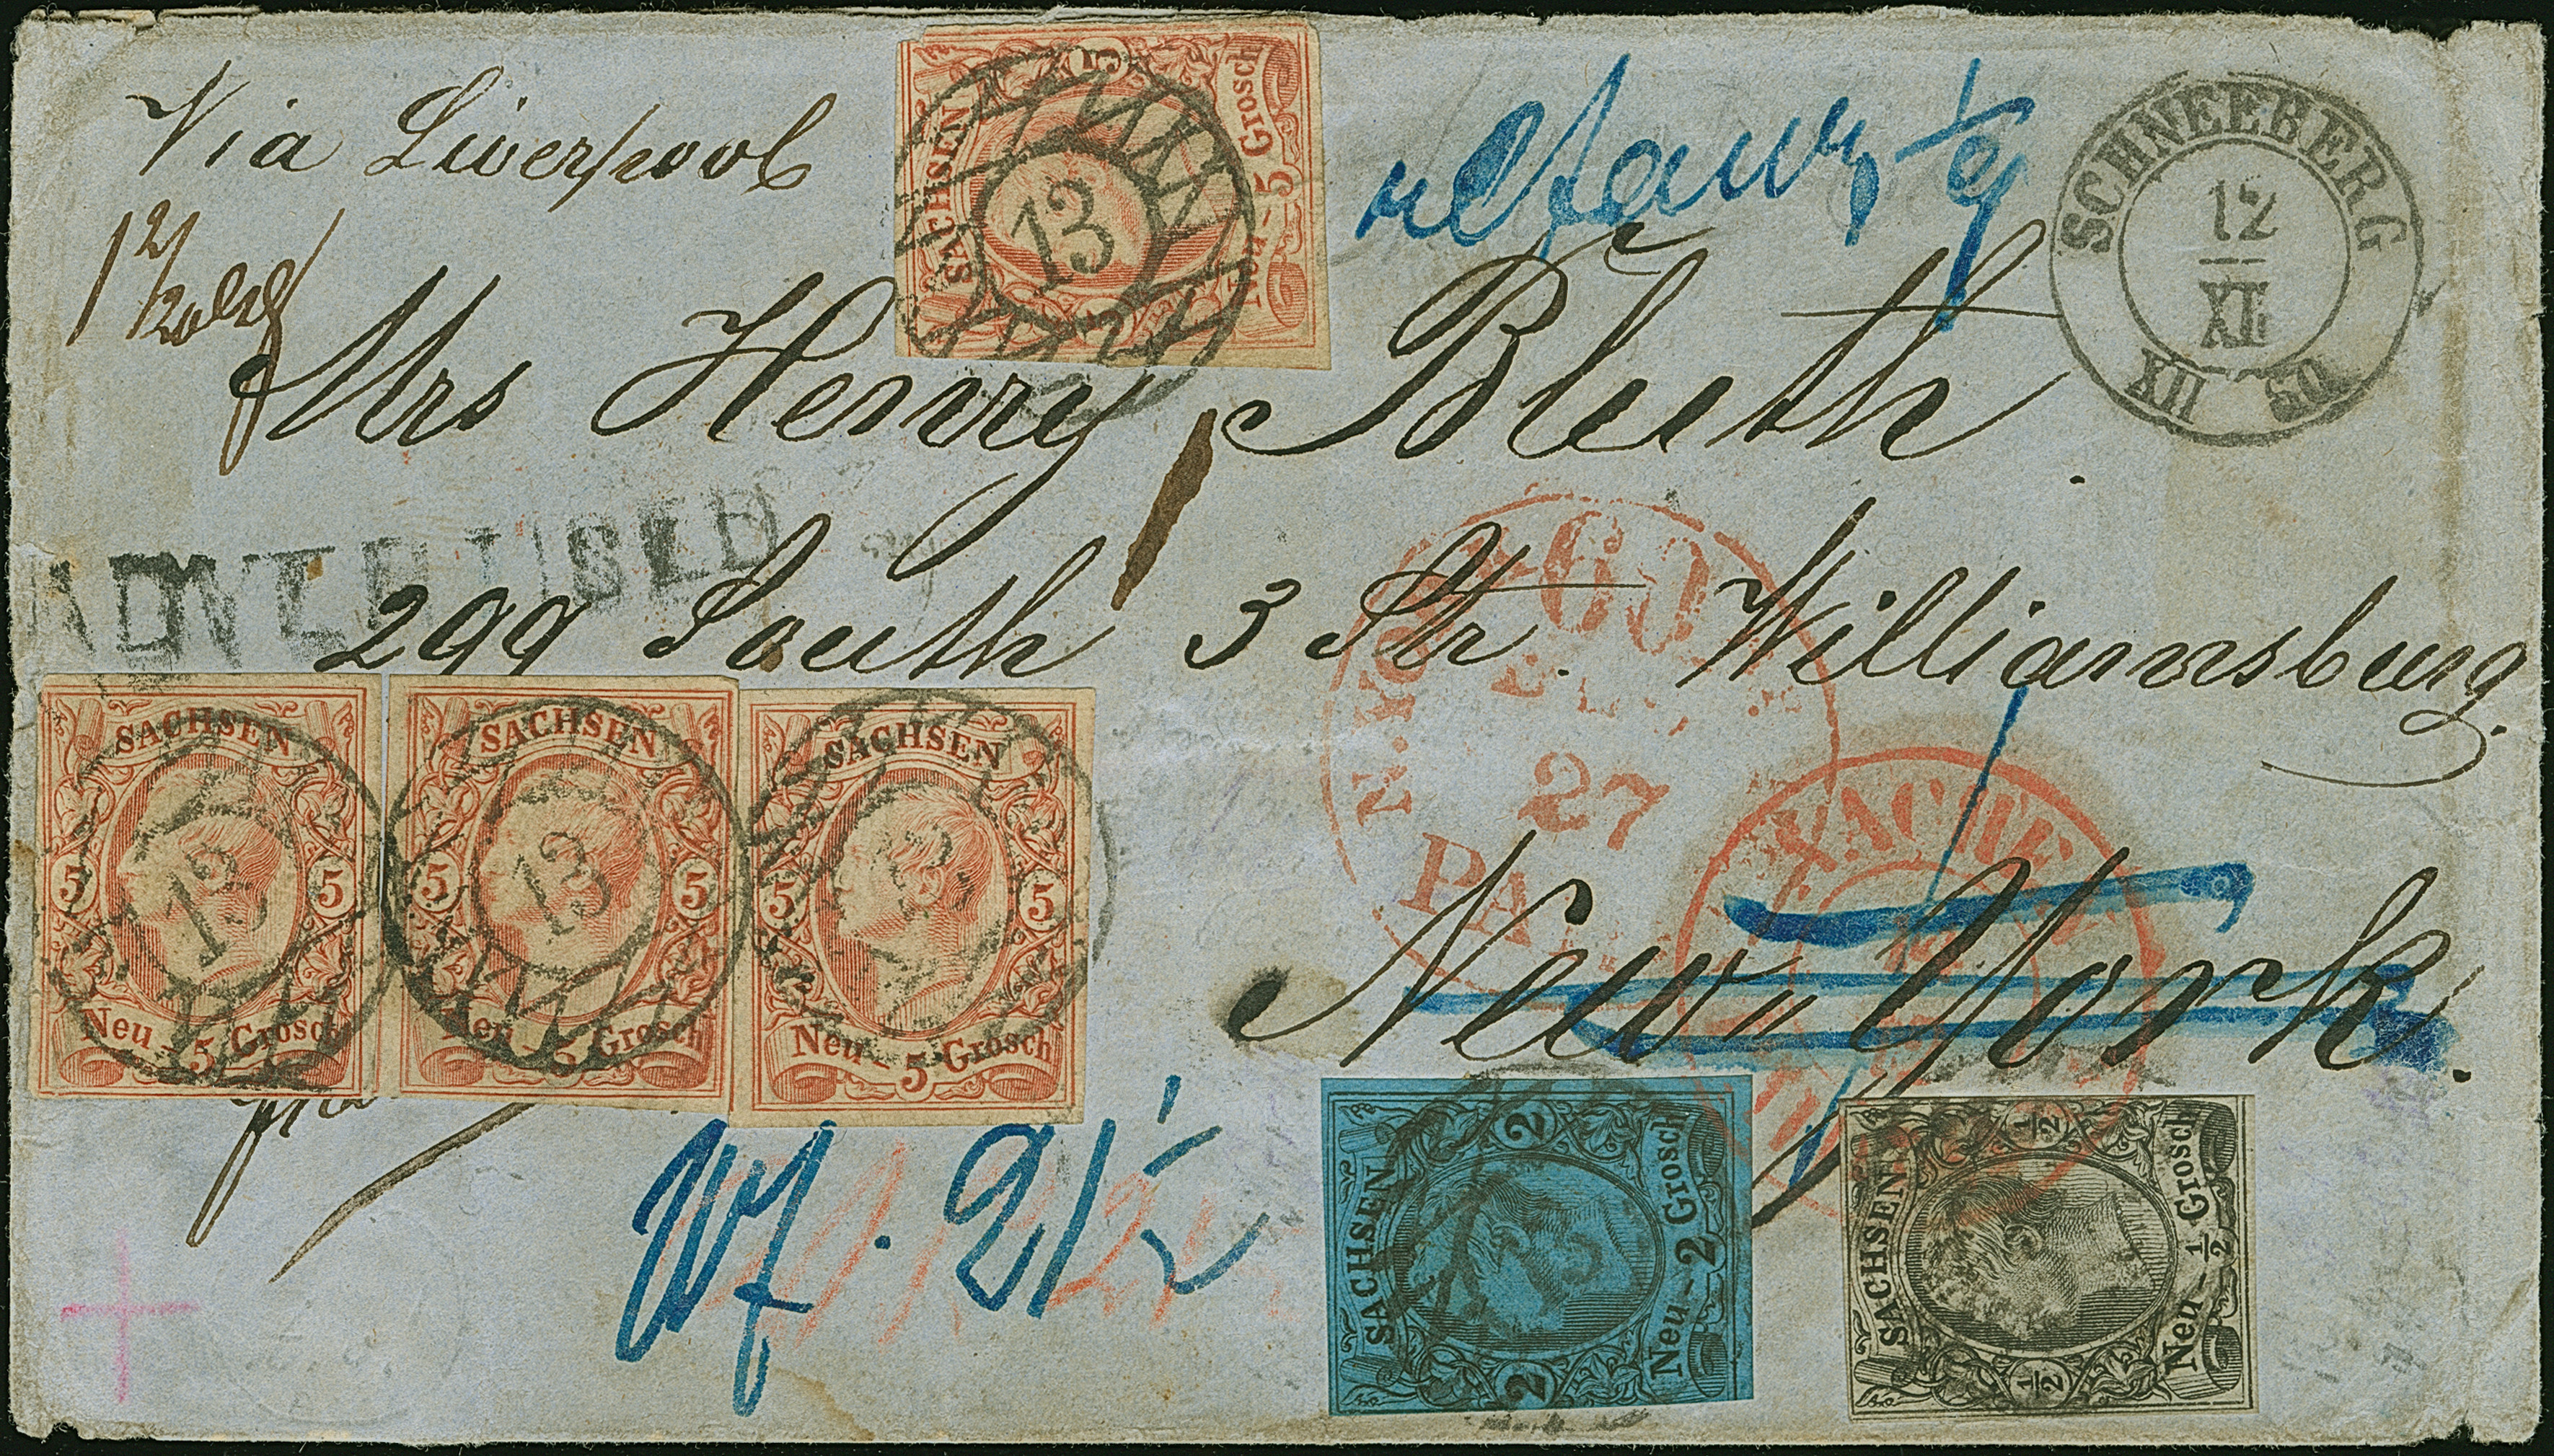 Via Liverpool
SACHSEN
Neu - 5 Grosch
5
13
SCHNEEBERG
12
XI
XII 50
Mrs Henry Bluth.
ADVERTISED
299 South 3 Str. Williamsburg.
N. YORK
27
PA
AACHEN
New York.
SACHSEN
5 5
Neu - 5 Grosch
13
SACHSEN
5 5
Neu - 5 Grosch
13
SACHSEN
5 5
Neu - 5 Grosch
13
Wf. 21 1/2
SACHSEN
2 2
Neu - 2 Grosch
SACHSEN
1/2 1/2
Neu - 1/2 Grosch